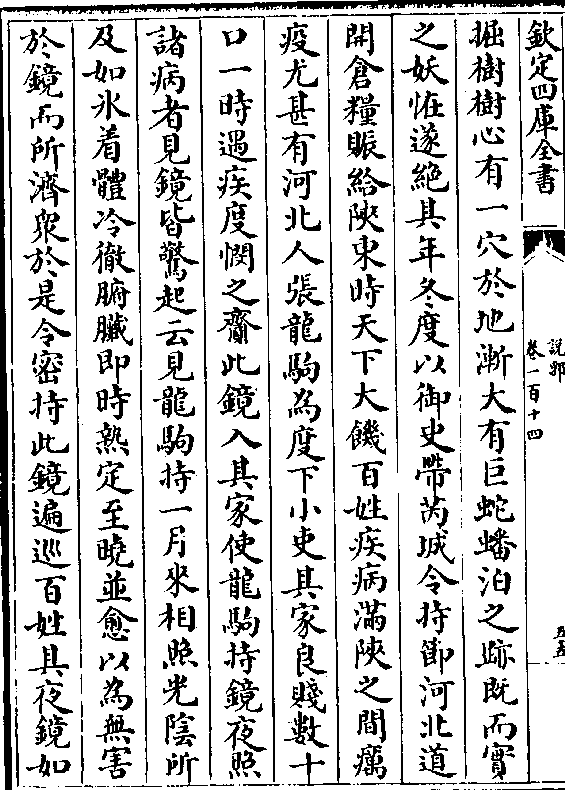 欽定四庫全書
說郛
卷一百十四
五五
掘樹樹心有一穴於地漸大有巨蛇蟠泊之跡既而實
之妖恠遂絕其年冬度以御史帶芮城令持節河北道
開倉糧賑給陜東時天下大饑百姓疾病滿陜之間癘
疫尤甚有河北人張龍駒為度下小吏其家良賤數十
口一時遇疾度憫之齎此鏡入其家使龍駒持鏡夜照
諸病者見鏡皆驚起云見龍駒持一月來相照光陰所
及如氷着體冷徹腑臟即時熱定至曉並愈以為無害
於鏡而所濟衆於是令密持此鏡遍巡百姓其夜鏡如